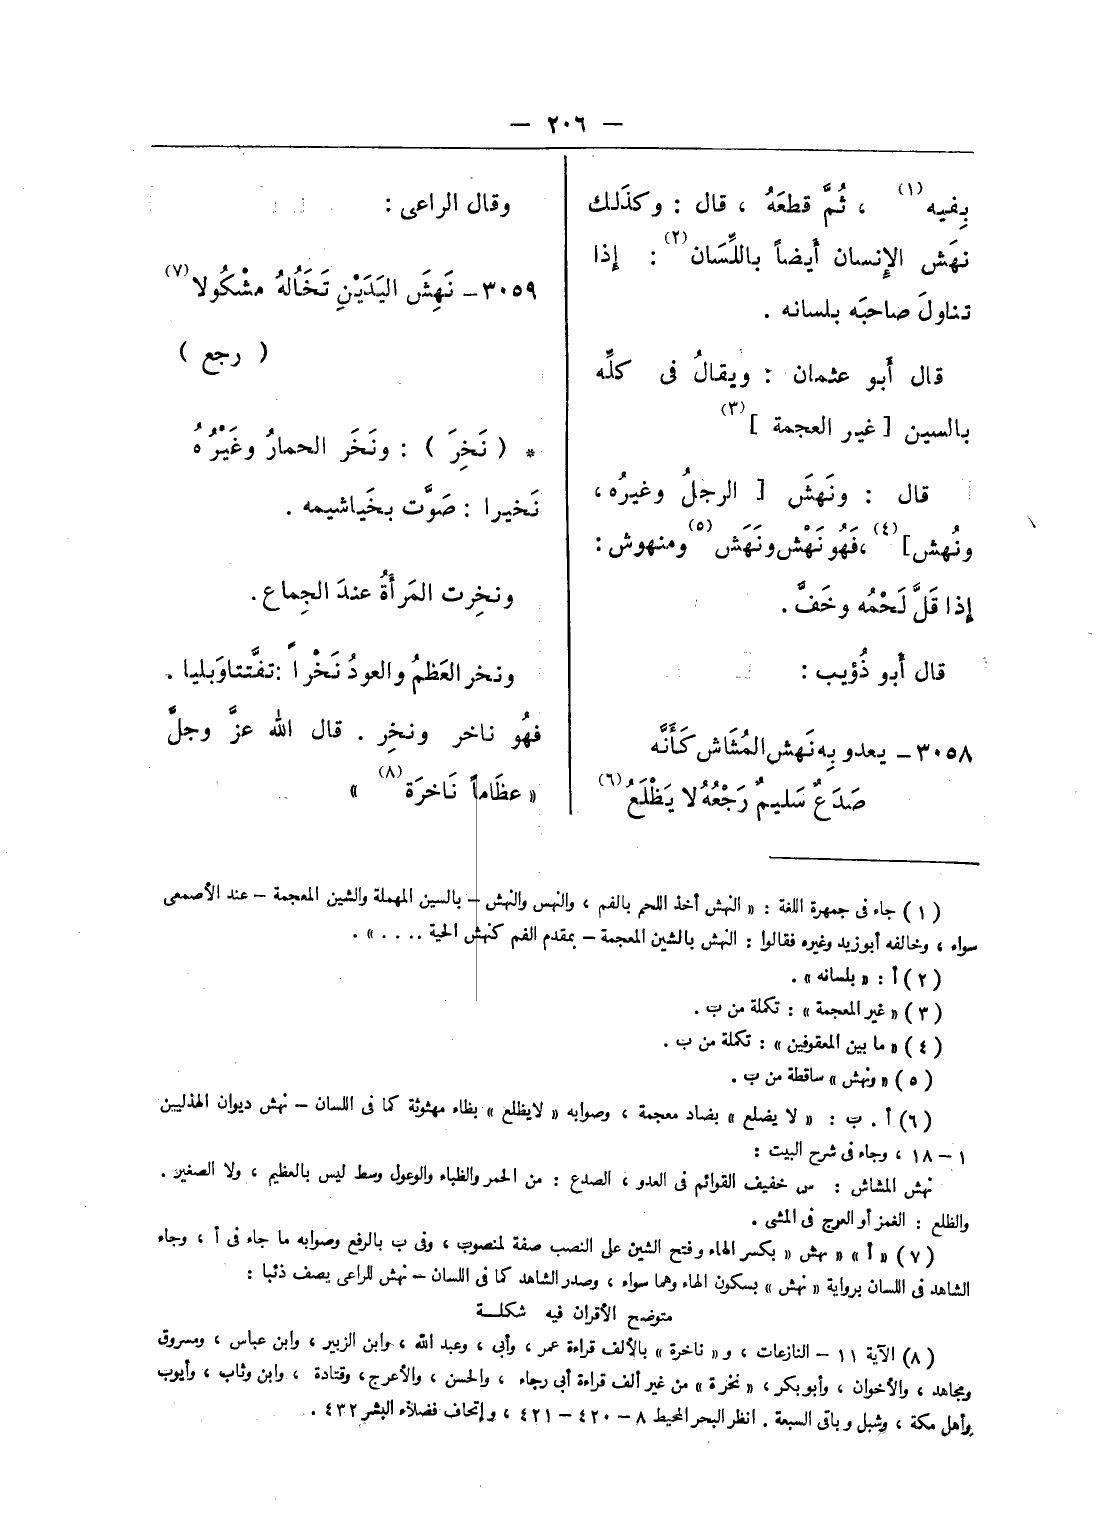 — ٢٠٦ —
بِفيه (١) ، ثُمَّ قطعَهُ ، قال : وكذَلك
نهَش الإِنسان أَيضاً باللِّسَان (٢) : إِذا
تناولَ صاحبَه بلسانه .
قال أَبو عثمان : ويقالُ فى كلِّه
بالسين [ غير العجمة ] (٣)
قال : ونَهَشَ [ الرجلُ وغيرُه ،
ونُهش ] (٤) ، فَهُو نَهْش ونَهَش (٥) ومنهوش :
إِذا قَلَّ لَحْمُه وخَفَّ .
قال أَبو ذُؤيب :
٣٠٥٨ – يعدو بِه نَهش المُشَاش كَأَنَّه
صَدَعٌ سَليمٌ رَجْعُهُ لا يَظْلَعُ (٦)
وقال الراعى :
٣٠٥٩ – نَهِشَ اليَدَيْنِ تَخَالُهُ مشْكُولا (٧)
( رجع )
* ( نَخِرَ ) : ونَخَر الحمارُ وغَيْرُهُ
نَخيرا : صَوَّت بخَياشيمه .
ونخِرت المَرأَةُ عندَ الجِماع .
ونخر العَظمُ والعودُ نَخْراً : تفَتَّتا وَبليا .
فهُو ناخر ونخِر . قال الله عزَّ وجلَّ
« عظَاماً نَاخرَة (٨) »
(١) جاء فى جمهرة اللغة : « النهش أخذ اللحم بالفم ، والنهس والنهش – بالسين المهملة والشين المعجمة – عند الأصمعى
سواء ، وخالفه أبوزيد وغيره فقالوا : النهش بالشين المعجمة – بمقدم الفم كنهش الحية .... » .
(٢) أ : « بلسانه » .
(٣) « غير المعجمة » : تكملة من ب .
(٤) « ما بين المعقوفين » : تكملة من ب .
(٥) « ونهش » ساقطة من ب .
(٦) أ . ب : « لا يضلع » بضاد معجمة ، وصوابه « لايظلع » بظاء مهثوثة كما فى اللسان – نهش ديوان الهذليين
١ – ١٨ ، وجاء فى شرح البيت :
نهش المشاش : س خفيف القوائم فى العدو ، الصدع : من الحمر والظباء والوعول وسط ليس بالعظيم ، ولا الصغير .
والظلع : الغمز أو العرج فى المشى .
(٧) « أ » « نهش « بكسر الهاء وفتح الشين على النصب صفة لمنصوب ، وفى ب بالرفع وصوابه ما جاء فى أ ، وجاء
الشاهد فى اللسان برواية « نهش » بسكون الهاء وهما سواء ، وصدر الشاهد كما فى اللسان – نهش للراعى يصف ذئبا :
متوضح الأقران فيه شكلــة
(٨) الآية ١١ – النازعات ، و« ناخرة » بالألف قراءة عمر ، وأبى ، وعبد الله ، وابن الزبير ، وابن عباس ، ومسروق
ومجاهد ، والأخوان ، وأبو بكر ، « نخرة » من غير ألف قراءة أبى رجاء ، والحسن ، والأعرج ، وقتادة ، وابن وثاب ، وأيوب
وأهل مكة ، وشبل وباقى السبعة . انظر البحر المحيط ٨ – ٤٢٠ – ٤٢١ ، وإتحاف فضلاء البشر ٤٣٢ .